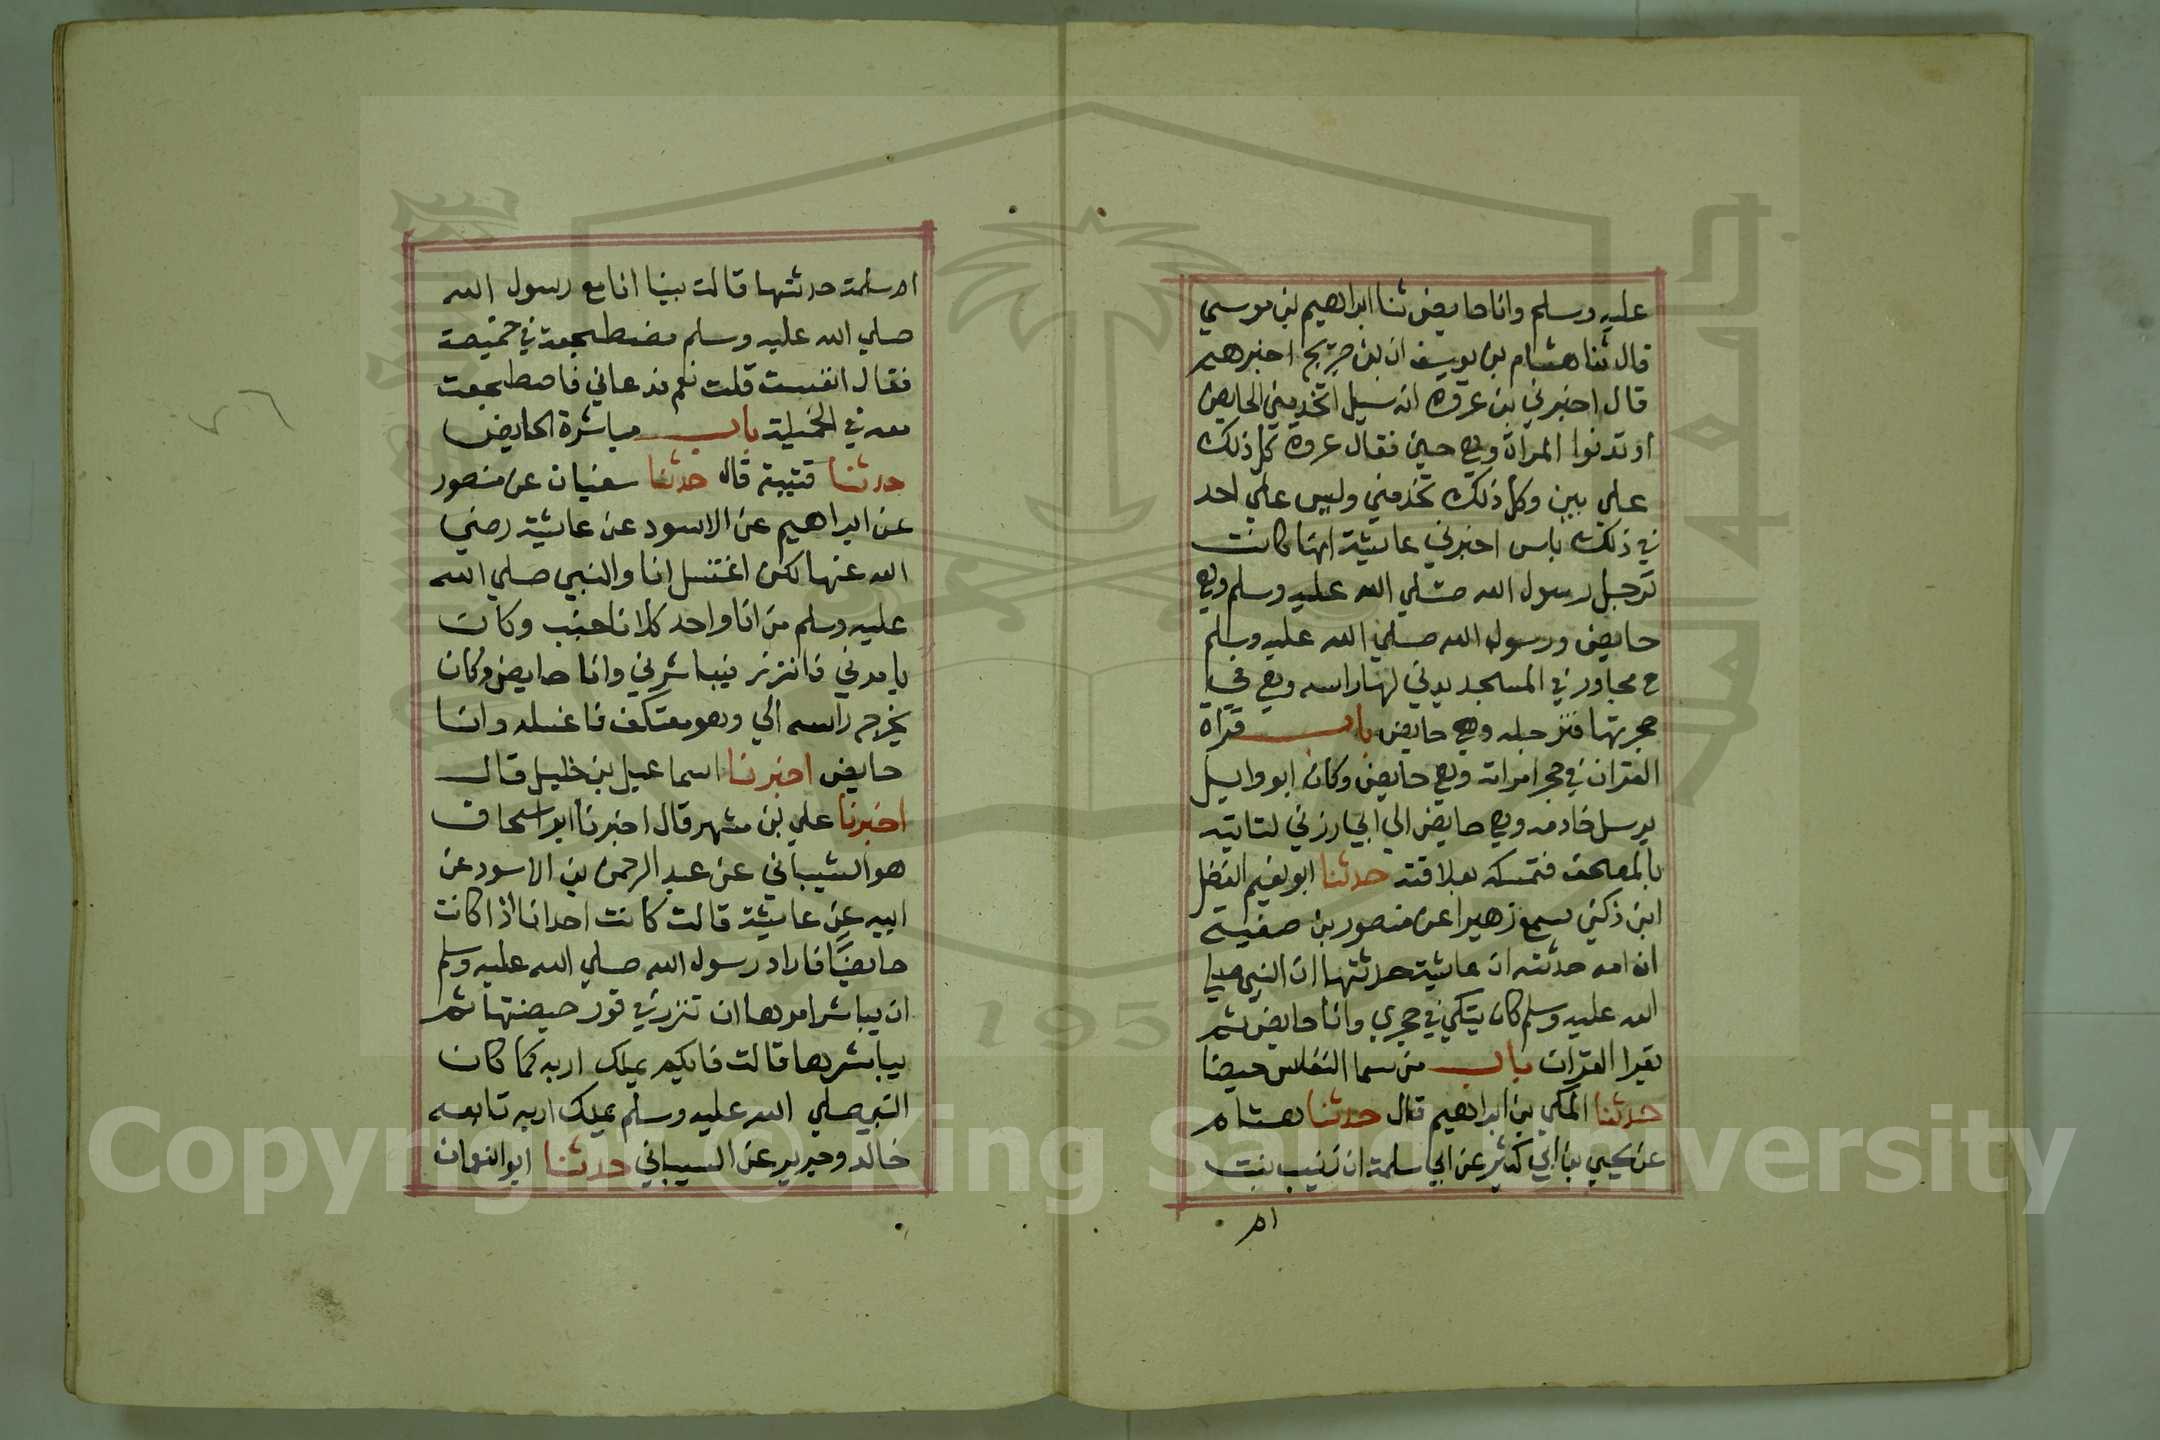 عليه وسلم وانا حايض ثنا ابراهيم بن موسي
قال ثنا هشام بن يوسف ان بن جريج اخبرهم
قال اخبرني بن عروه انه سيل اتخدمني الحايض
او تدنوا المراة وهي جنب فقال عروه كل ذلك
علي بين وكل ذلك تخدمني وليس علي احد
في ذلك باس اخبرني عايشة انها كانت
ترجل رسول الله صلي الله عليه وسلم وهي
حايض ورسول الله صلي الله عليه وسلم
ح مجاور في المسجد يدني لها راسه وهي في
حجرتها فترجله وهي حايض باب قراة
القران في حجر امراته وهي حايض وكان ابو وايل
يرسل خادمه وهي حايض الي ابي رزني لتاتيه
بالمصحف فتمسكه بعلاقته حدثنا ابو نعيم الفضل
ابن ذكين سمع زهيرا عن منصور بن صفية
ان امه حدثته ان عايشة حدثتها ان النبي صلي
الله عليه وسلم كان يتكي في حجري وانا حايض ثم
يقرا القران باب من سما النفاس حيضا
حدثنا المكي بن ابراهيم قال حدثنا هشام
عن يحيي بن ابي كثير عن ابي سلمة ان زينب بنت
ام
ام سلمة حدثتها قالت بينا انا مع رسول الله
صلي الله عليه وسلم مضطجعة في خميصة
فقال انفست قلت نعم فدعاني فاضطجعت
معه في الخميلة باب مباشرة الحايض
حدثنا قتيبة قال حدثنا سفيان عن منصور
عن ابراهيم عن الاسود عن عايشة رضي
الله عنها لكن اغتسل انا والنبي صلي الله
عليه وسلم من انا واحد كلانا جنب وكان
يامرني فانتزر فيباشرني وانا حايض وكان
يخرج راسه الي وهو معتكف فاغسله وانا
حايض اخبرنا اسماعيل بن خليل قال
اخبرنا علي بن مشهر قال اخبرنا ابو اسحاق
هو الشيباني عن عبد الرحمن بن الاسود عن
ابيه عن عايشة قالت كانت احدانا اذا كانت
حايضا فاراد رسول الله صلي الله عليه وسلم
ان يباشر امرها ان تتزر في فور حيضتها ثم
يباشرها قالت فايكم يملك اربه كما كان
النبي صلي الله عليه وسلم يملك اربه تابعه
خالد وجرير عن السيباني حدثنا ابو النعمان
1957
Copyright © King Saud University